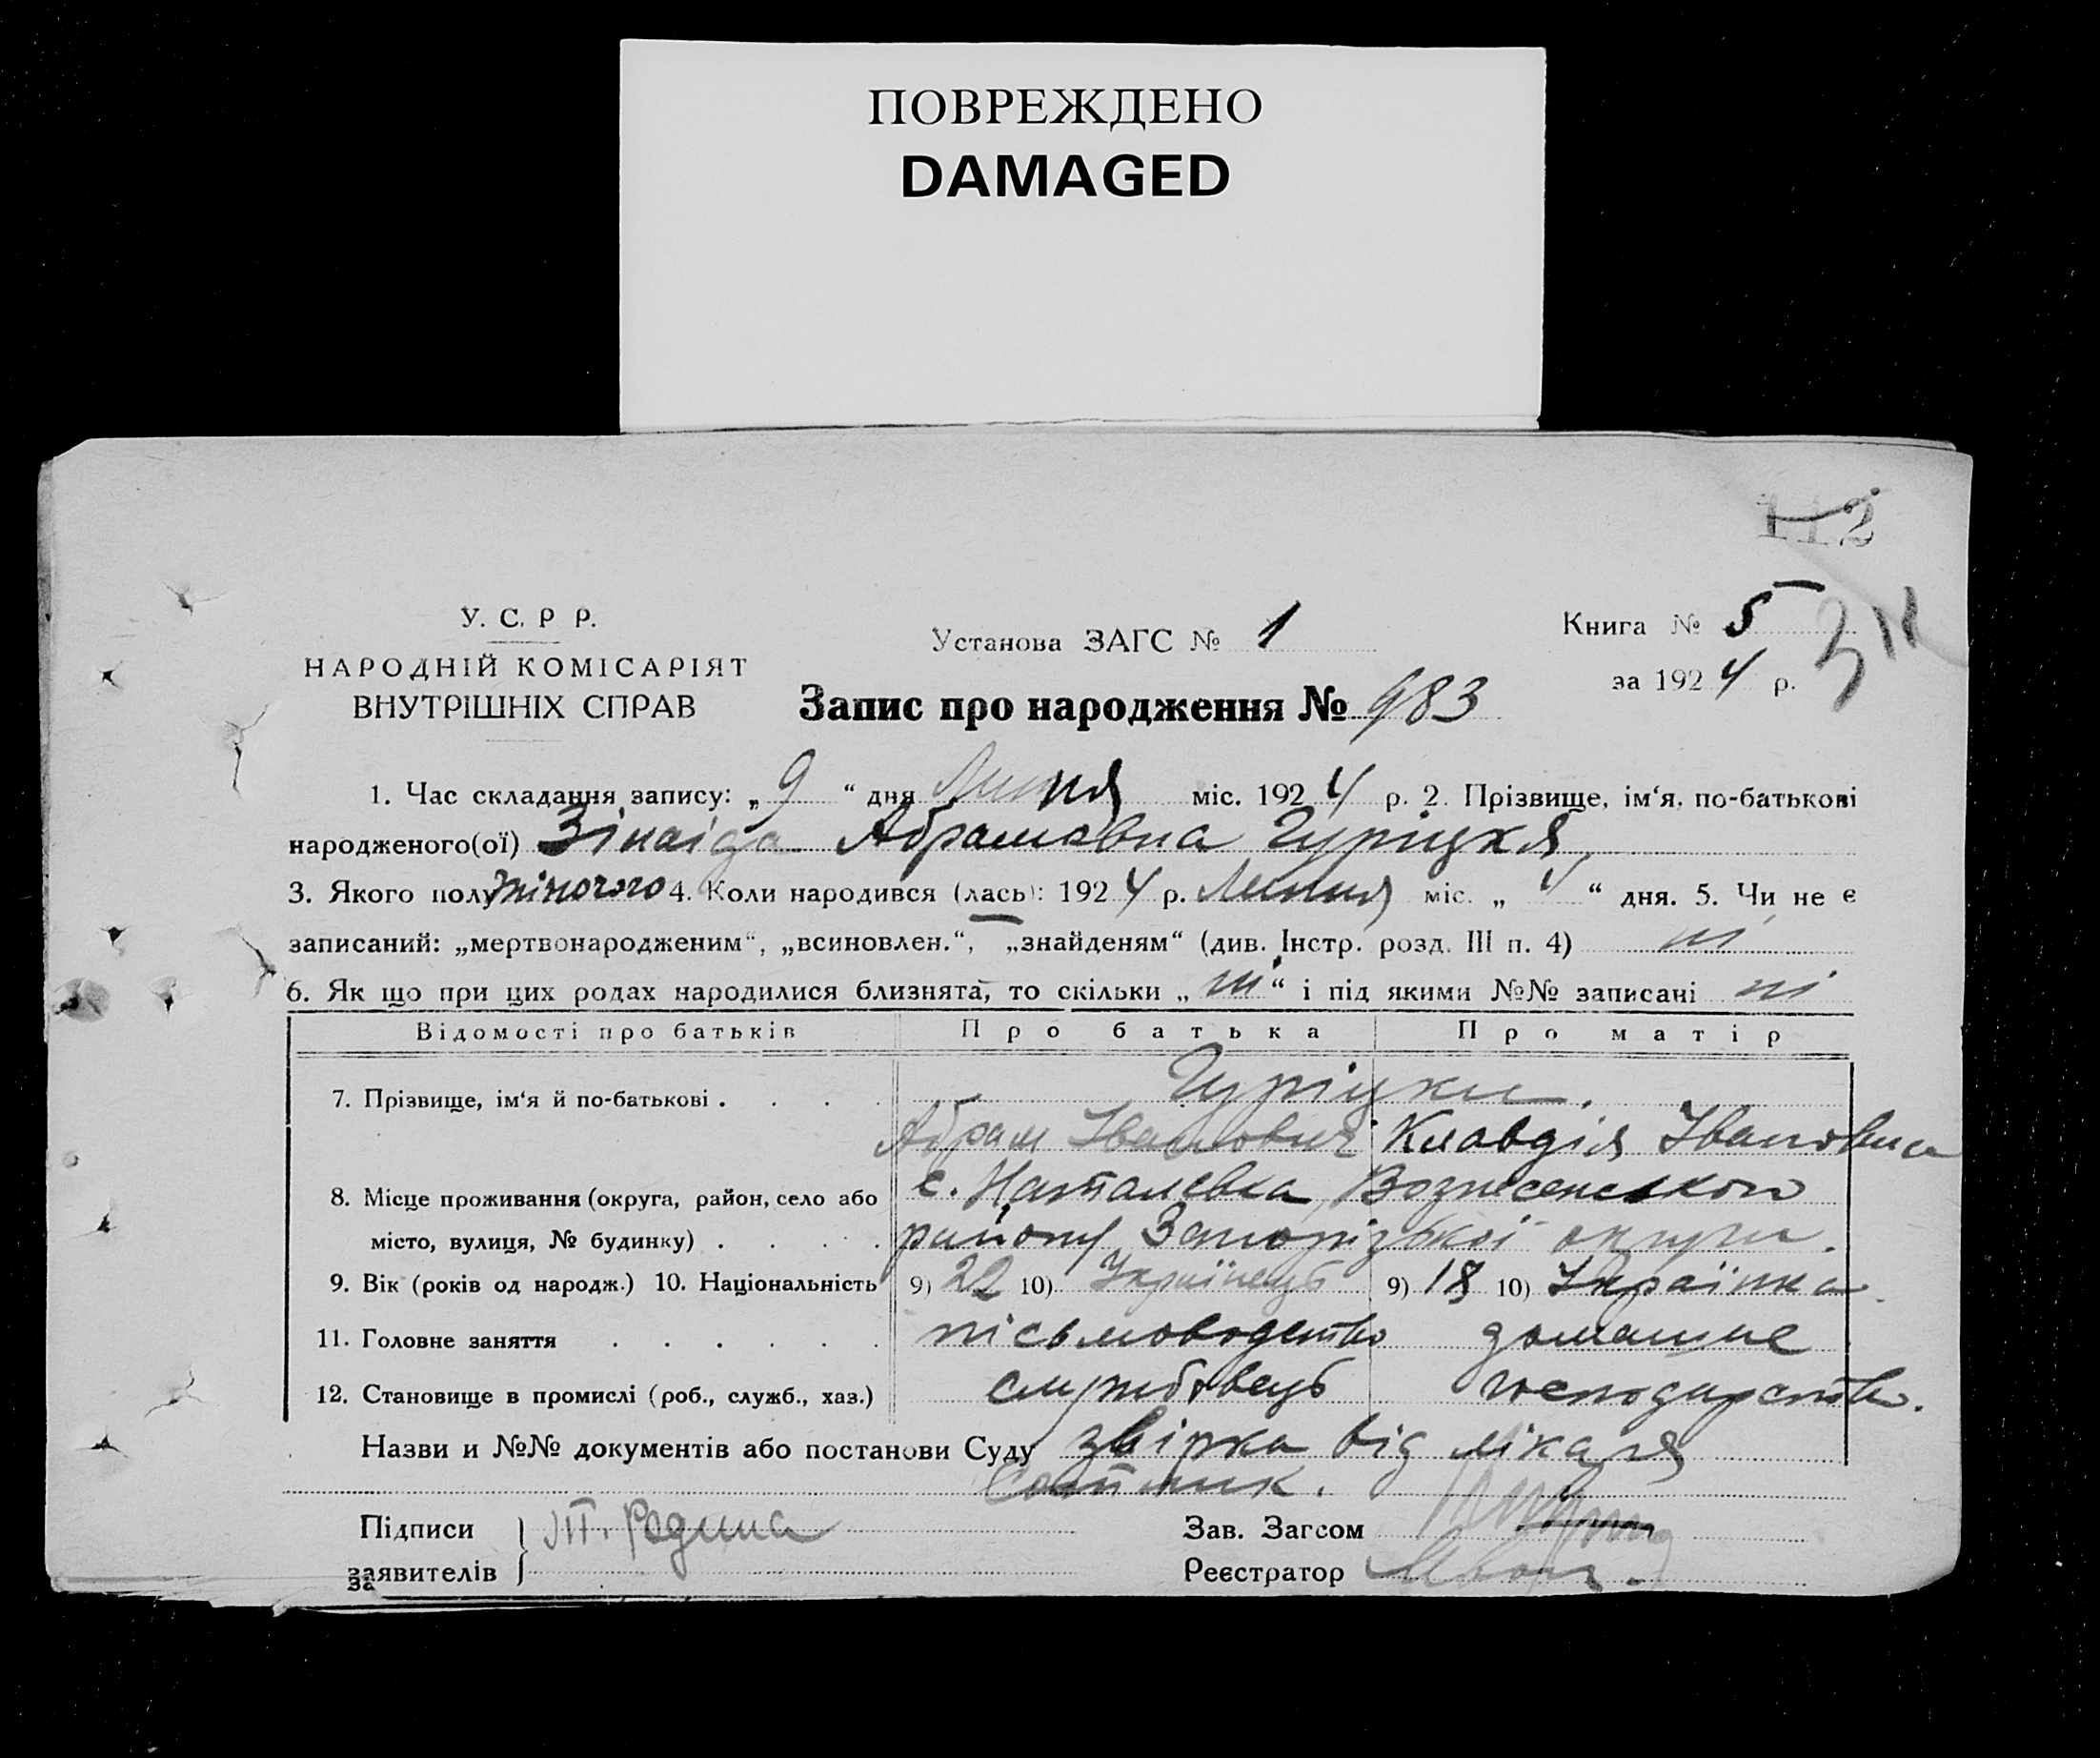 ПОВРЕЖДЕНО
DAMAGED
112
У. С. Р Р.
НАРОДНІЙ КОМІСАРІЯТ
ВНУТРІШНІХ СПРАВ
Установа ЗАГС № 1
Книга № 5
за 1924 р.
Запис про народження № 983
1. Час складання запису: „9“ дня Липня міс. 1924 р. 2. Прізвище, ім‘я, по-батькові
народженого(ої) Зінаіда Абрамовна Гуріцкя,
3. Якого полу жіночого 4. Коли народився (лась): 1924 р. Липня міс. „4“ дня. 5. Чи не є
записаний: „мертвонародженим“, „всиновлен.“, „знайденям“ (див. Інстр. розд. III п. 4) ні
6. Як що при цих родах народилися близнята, то скільки „ні“ і під якими №№ записані ні
Відомості про батьків Про батька Про матір
7. Прізвище, ім‘я й по-батькові . . . . Гуріцки.
Абрам Іванович Клавдія Івановна
8. Місце проживання (округа, район, село або с. Наталевка, Вознесенського
місто, вулиця, № будинку) . . . . району Запорізької округи.
9. Вік (років од народж.) 10. Національність 9) 22 10) Українець 9) 18 10) Українка
11. Головне заняття . . . . . . письмоводство домашне
12. Становище в промислі (роб., служб., хаз.) службовець господарство.
Назви и №№ документів або постанови Суду звірка від лікаря
Підписи
заявителів
Редина
Зав. Загсом
Реєстратор
за